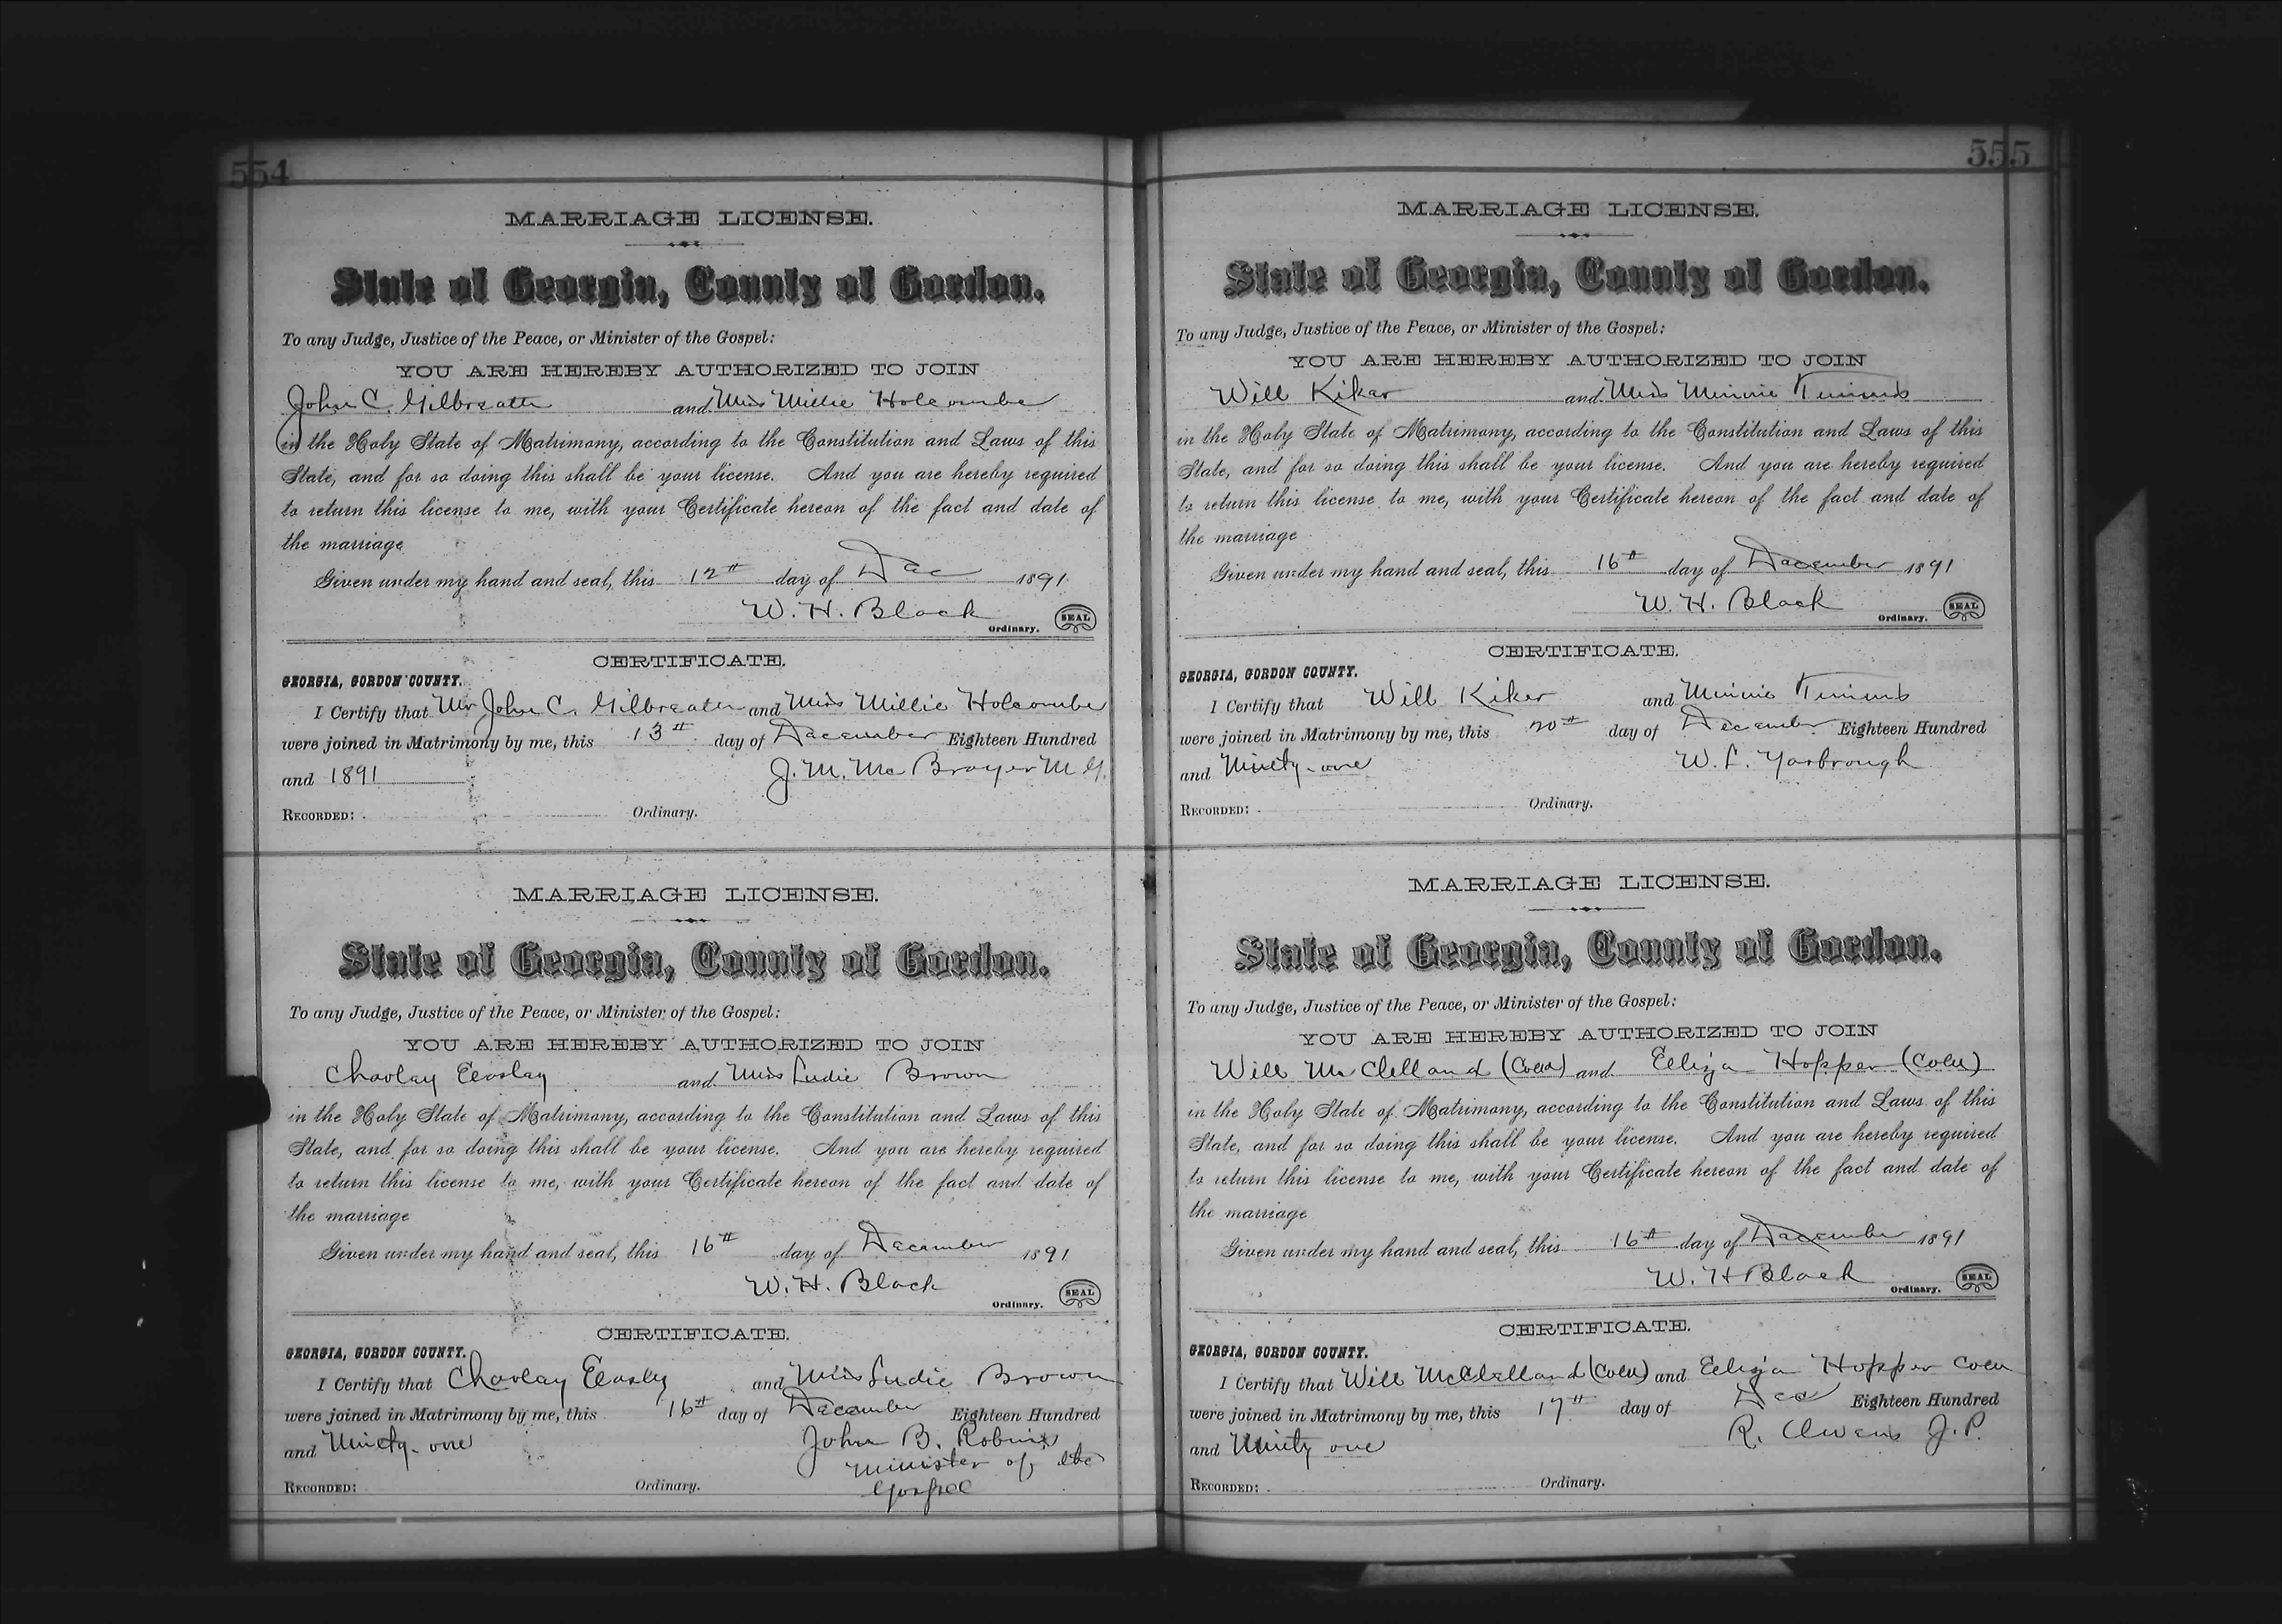 554
MARRIAGE LICENSE.
State of Georgia, County of Gordon.
To any Judge, Justice of the Peace, or Minister of the Gospel:
YOU ARE HEREBY AUTHORIZED TO JOIN
John C. Gilbreath and Miss Millie Holcombe
in the Holy State of Matrimony, according to the Constitution and Laws of this
State, and for so doing this shall be your license. And you are hereby required
to return this license to me, with your Certificate hereon of the fact and date of
the marriage
Given under my hand and seal, this 12th day of Dec 1891
W. H. Black
Ordinary. SEAL
CERTIFICATE.
GEORGIA, GORDON COUNTY.
I Certify that Mr John C. Gilbreath and Miss Millie Holcombe
were joined in Matrimony by me, this 13th day of December Eighteen Hundred
and 1891 J. M. McBrayer M G.
RECORDED: Ordinary.
MARRIAGE LICENSE.
State of Georgia, County of Gordon.
To any Judge, Justice of the Peace, or Minister of the Gospel:
YOU ARE HEREBY AUTHORIZED TO JOIN
Charley Easley and Miss Ludie Brown
in the Holy State of Matrimony, according to the Constitution and Laws of this
State, and for so doing this shall be your license. And you are hereby required
to return this license to me, with your Certificate hereon of the fact and date of
the marriage
Given under my hand and seal, this 16th day of December 1891
W. H. Black
Ordinary. SEAL
CERTIFICATE.
GEORGIA, GORDON COUNTY.
I Certify that Charley Easley and Miss Ludie Brown
were joined in Matrimony by me, this 16th day of December Eighteen Hundred
and Ninety-one John B. Robins
Minister of the
RECORDED: Ordinary. Gospel
555
MARRIAGE LICENSE.
State of Georgia, County of Gordon.
To any Judge, Justice of the Peace, or Minister of the Gospel:
YOU ARE HEREBY AUTHORIZED TO JOIN
Will Kiker and Miss Minnie Timms
in the Holy State of Matrimony, according to the Constitution and Laws of this
State, and for so doing this shall be your license. And you are hereby required
to return this license to me, with your Certificate hereon of the fact and date of
the marriage
Given under my hand and seal, this 16th day of December 1891
W. H. Black
Ordinary. SEAL
CERTIFICATE.
GEORGIA, GORDON COUNTY.
I Certify that Will Kiker and Minnie Timms
were joined in Matrimony by me, this 20th day of December Eighteen Hundred
and Ninety-one W. L. Yarbrough
RECORDED: Ordinary.
MARRIAGE LICENSE.
State of Georgia, County of Gordon.
To any Judge, Justice of the Peace, or Minister of the Gospel:
YOU ARE HEREBY AUTHORIZED TO JOIN
Will McClelland (Cold) and Eliza Hopper (Cold)
in the Holy State of Matrimony, according to the Constitution and Laws of this
State, and for so doing this shall be your license. And you are hereby required
to return this license to me, with your Certificate hereon of the fact and date of
the marriage
Given under my hand and seal, this 16th day of December 1891
W. H Black
Ordinary. SEAL
CERTIFICATE.
GEORGIA, GORDON COUNTY.
I Certify that Will McClelland (Cold) and Eliza Hopper Cold
were joined in Matrimony by me, this 17th day of Dec Eighteen Hundred
and Ninety one R. Owens J. P.
RECORDED: Ordinary.